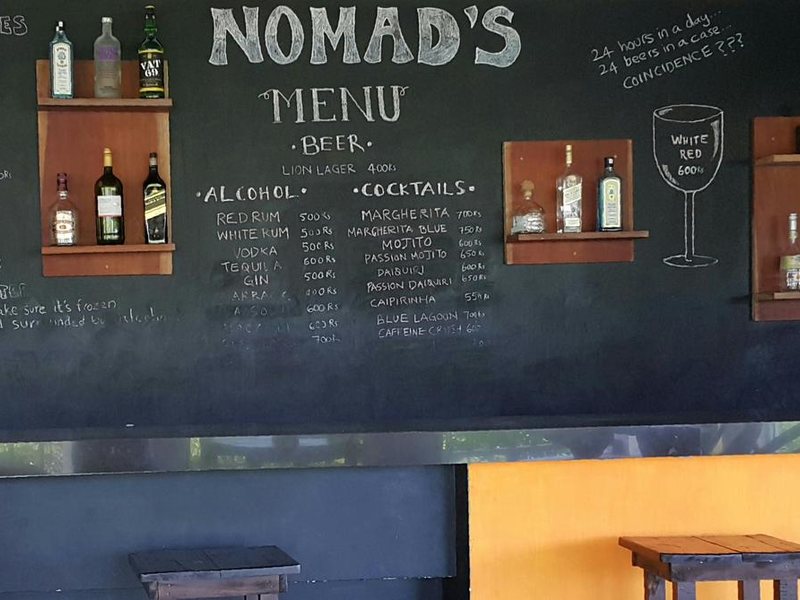 NOMAD'S
MENU
·BEER·
LION LAGER 400Rs
·ALCOHOL·
RED RUM 500Rs
WHITE RUM 500Rs
VODKA 500Rs
TEQUILA 600Rs
GIN 500Rs
600Rs
600Rs
·COCKTAILS·
MARGHERITA 700Rs
MARGHERITA BLUE 750Rs
MOJITO 600Rs
PASSION MOJITO 650Rs
DAIQUIRI 600Rs
PASSION DAIQUIRI 650Rs
CAIPIRINHA 550Rs
BLUE LAGOON 700Rs
CAFFEINE CRUSH 600
24 hours in a day...
24 beers in a case...
COINCIDENCE ???
WHITE
RED
600Rs
sure it's frozen
VAT
69